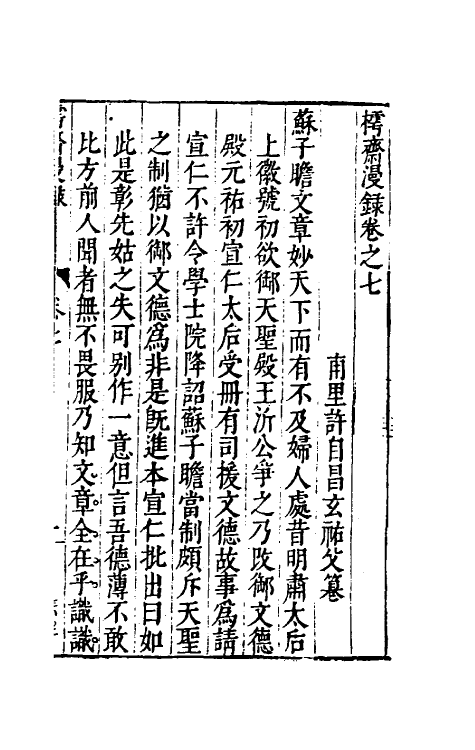 樗齋漫錄卷之七
甫里許自昌玄祐父纂
蘇子瞻文章妙天下而有不及婦人處昔明肅太后
上徽號初欲御天聖殿王沂公爭之乃改御文德
殿元祐初宣仁太后受冊有司援文德故事爲請
宣仁不許令學士院降詔蘇子瞻當制頗斥天聖
之制猶以御文德爲非是旣進本宣仁批出曰如
此是彰先姑之失可别作一意但言吾德薄不敢
比方前人聞者無不畏服乃知文章全在乎識識
卷七